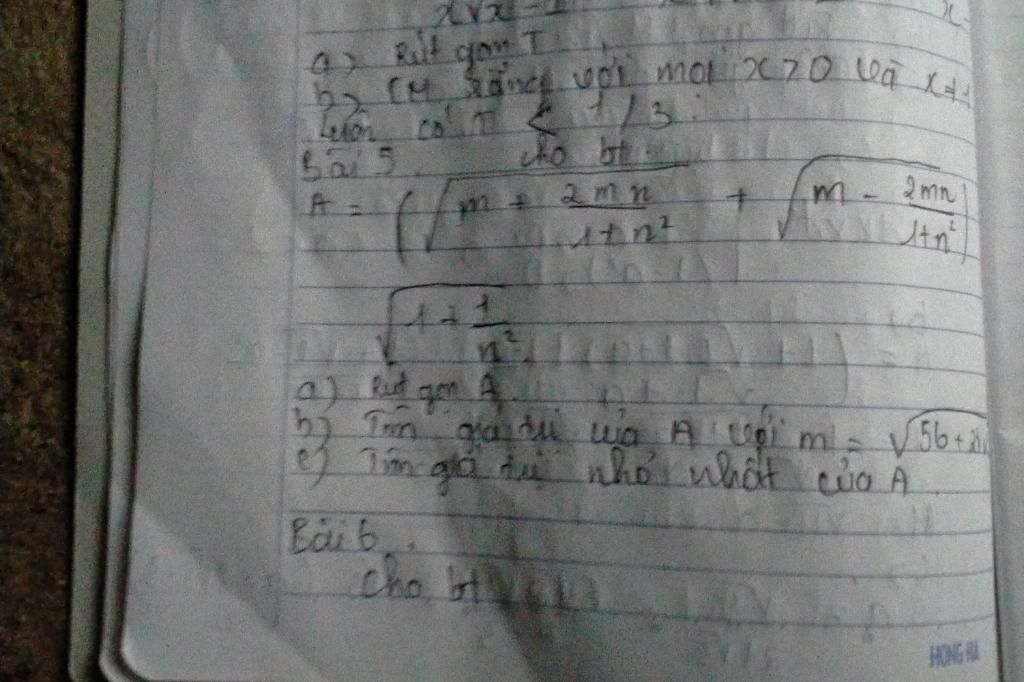 x√x - 1
a) Rút gọn T
b) CM rằng với mọi x > 0 và x ≠ 1
luôn có T < 1/3.
Bài 5. cho bt
A = (√(m + 2mn/(1+n²)) + √(m - 2mn/(1+n²)))
√(1 + 1/n²)
a) Rút gọn A.
b) Tìm giá trị của A với m = √(56+24
c) Tìm giá trị nhỏ nhất của A
Bài 6.
cho bt
HONG HA